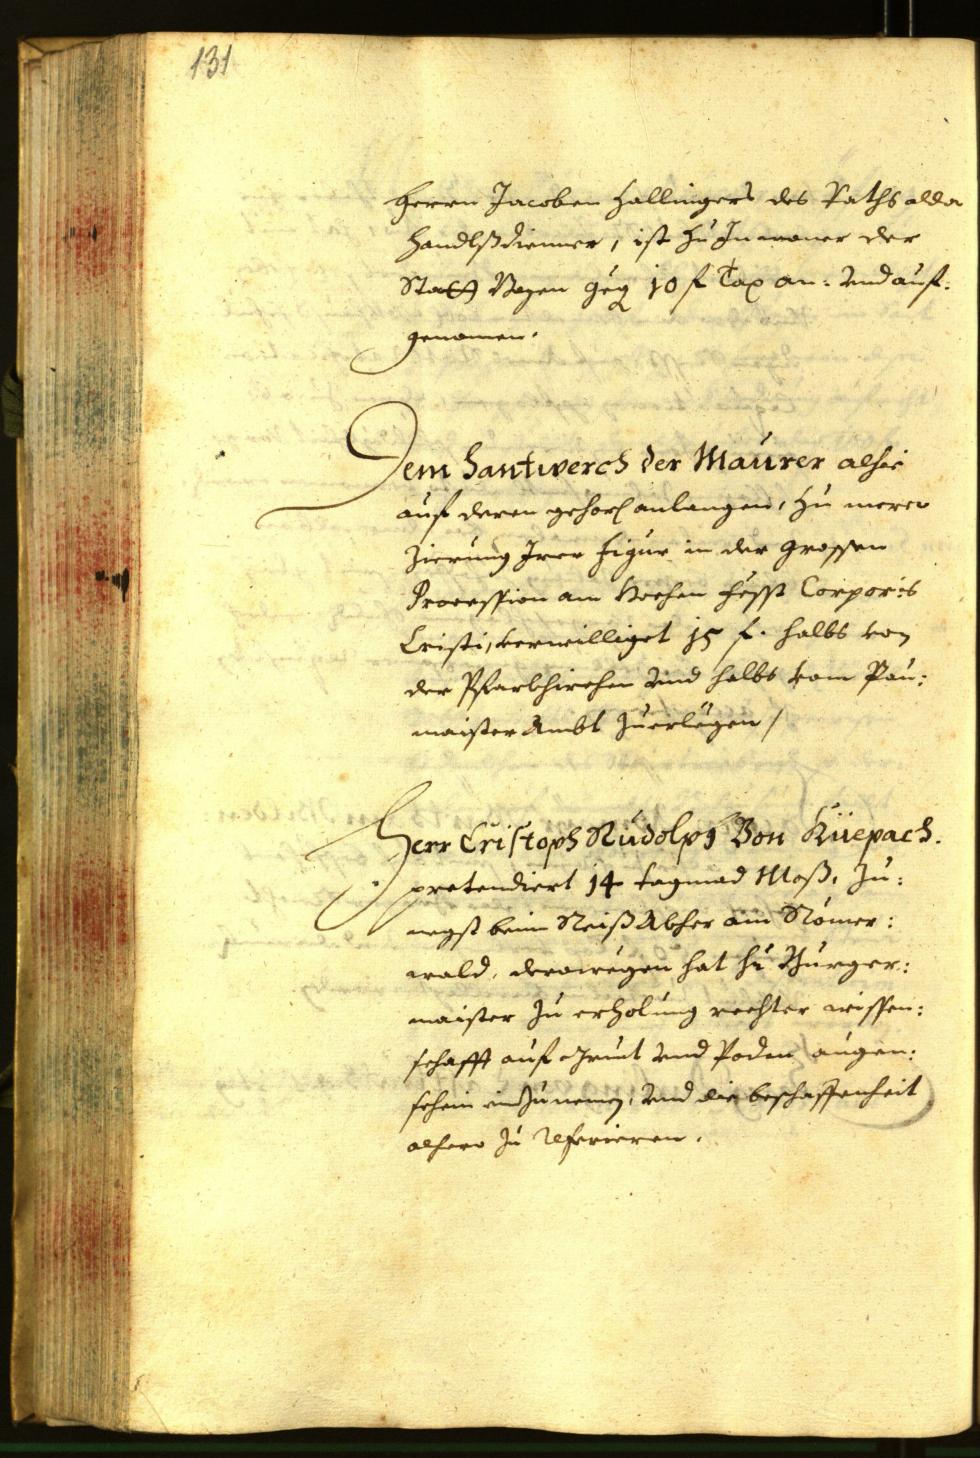 131
Herrn Jacoben Hallingers des Raths alda
Handlßdienner, ist zu Inwoner der
Statt Bozen geg 10 f Tax an: vnd auf:
genomen.
Dem Hantwerch der Maurer alhie
auf deren gehorß anlangen, zu merer
Zierung Irer Figur in der grossen
Procession am Hochen Fesst Corporis
Cristi, verwilliget 15 f. halbs von
der Pfarkhirchen vnd halbs vom Pau:
maister Ambt zuerlegen /
Herr Cristoph Rudolph Von Küepach.
pretendiert 14 tagmad Moß, zu:
negst beim Reiß Ablher am Römer:
wald, derowegen hat hr Burger:
maister zu erholung rechter wissen:
schafft auf Grunt vnd Poden augen:
schein einzunemen, vnd die beschaffenheit
alhero zu referieren.